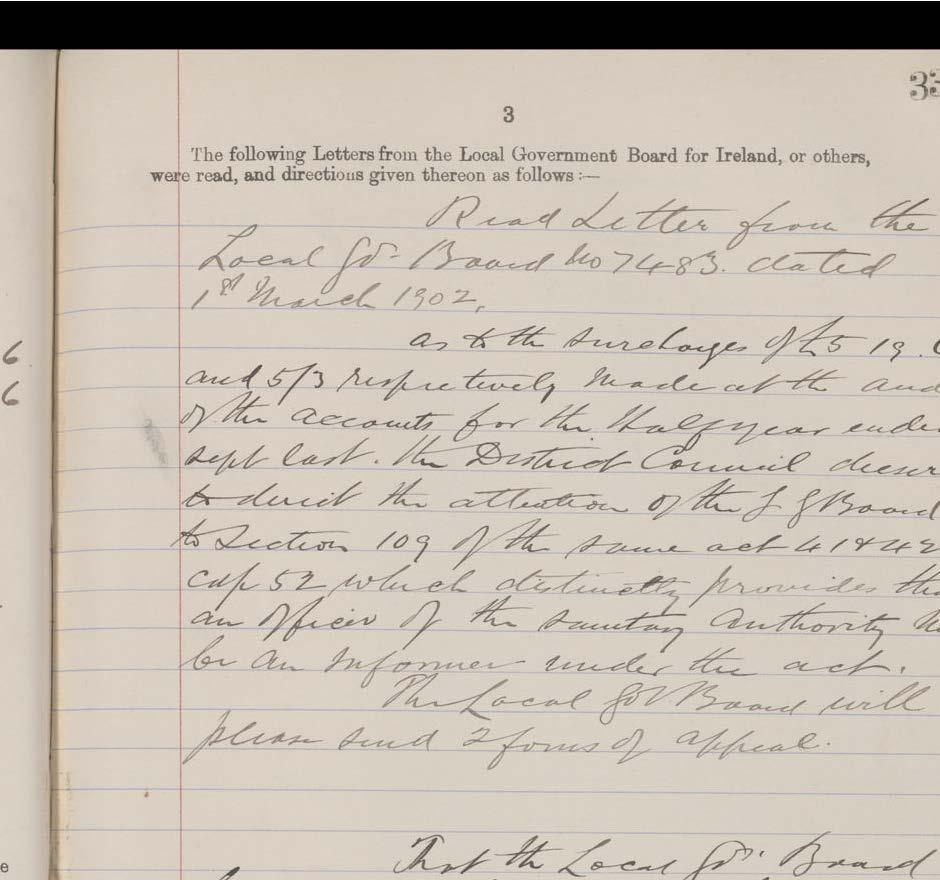 33
3
The following Letters from the Local Government Board for Ireland, or others,
were read, and directions given thereon as follows :—
Read Letter from the
Local Gd. Board No 7483. dated
1st March 1902,
as to the surcharges of £5 19.
and 5/3 respectively made at the
of the accounts for the Half year
sept last. the District Council
to direct the attention of the L G Board
to Section 109 of the same act 41 & 42
cap 52 which distinctly provides
an officer of the sanitary Authority
be an informer under the act.
The Local Gov Board will
please send 2 forms of appeal.
That the Local Gd. Board
6
6
e